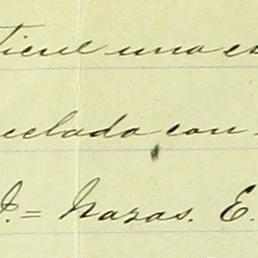 tiene una es
eclado con
I.= Nazas. E.